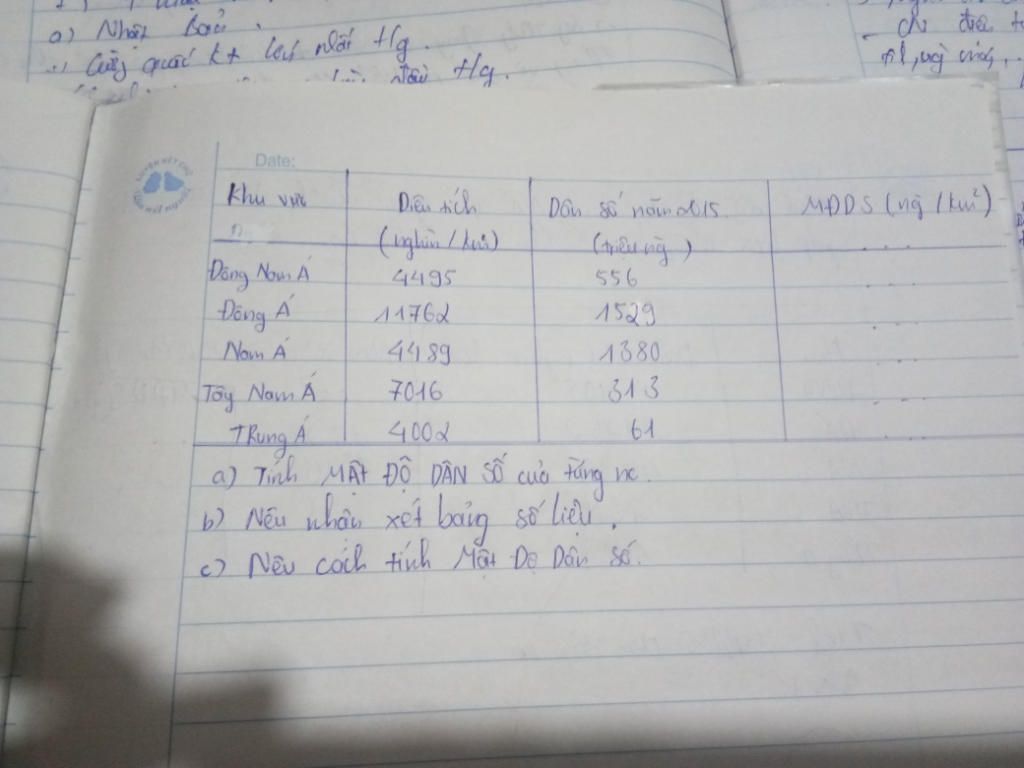 a) Nhật Bản.
Cường quốc kt lớn nhất
- chỉ
Date:
Khu vực Diện tích Dân số năm 2015 MĐDS (ng / km²)
(nghìn / km²) (triệu ng) ....
Đông Nam Á 4495 556 ....
Đông Á 11762 1529 ....
Nam Á 4489 1380 ....
Tây Nam Á 7016 313 ....
Trung Á 4002 61 ....
a) Tính MẬT ĐỘ DÂN SỐ của từng nc.
b) Nêu nhận xét bảng số liệu.
c) Nêu cách tính Mật Độ Dân Số.